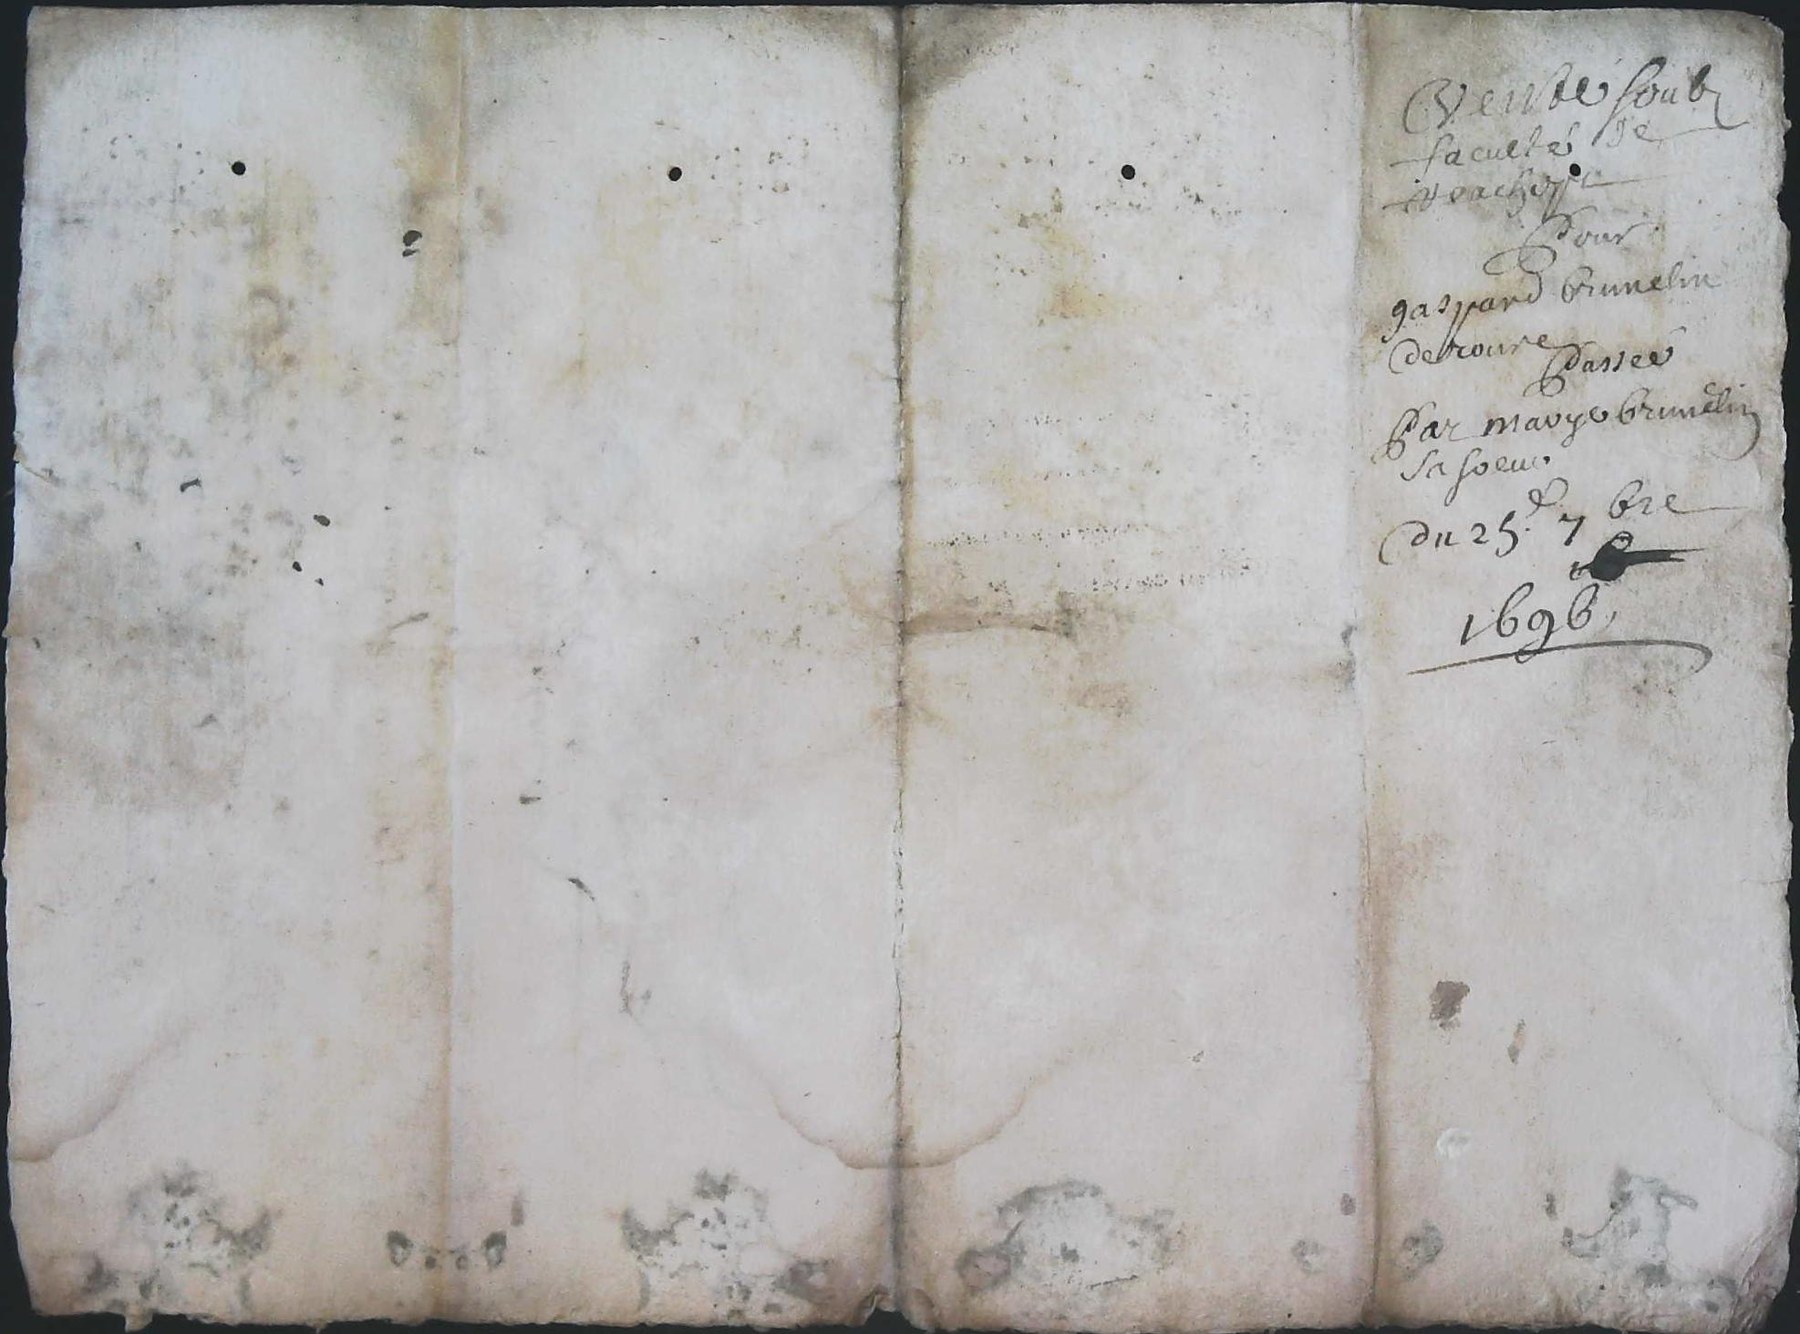 Vente soubz
faculté de
reachept
Pour
gaspard brunelin
de roure
Passée
Par marye brunelin
sa soeur
du 25.e 7 bre
1696